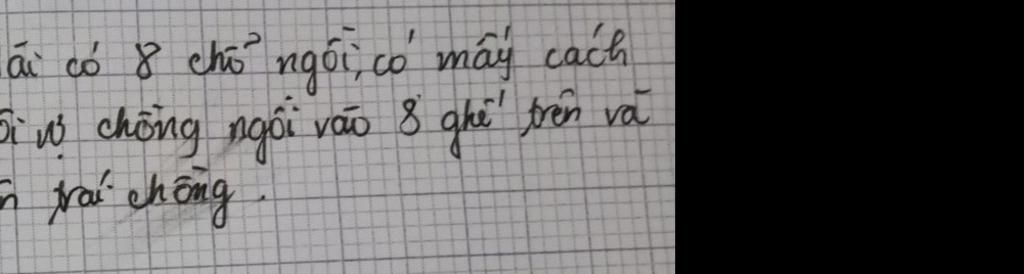 có 8 chỗ ngồi, có mấy cách
vợ chồng ngồi vào 8 ghế trên và
trái chồng.